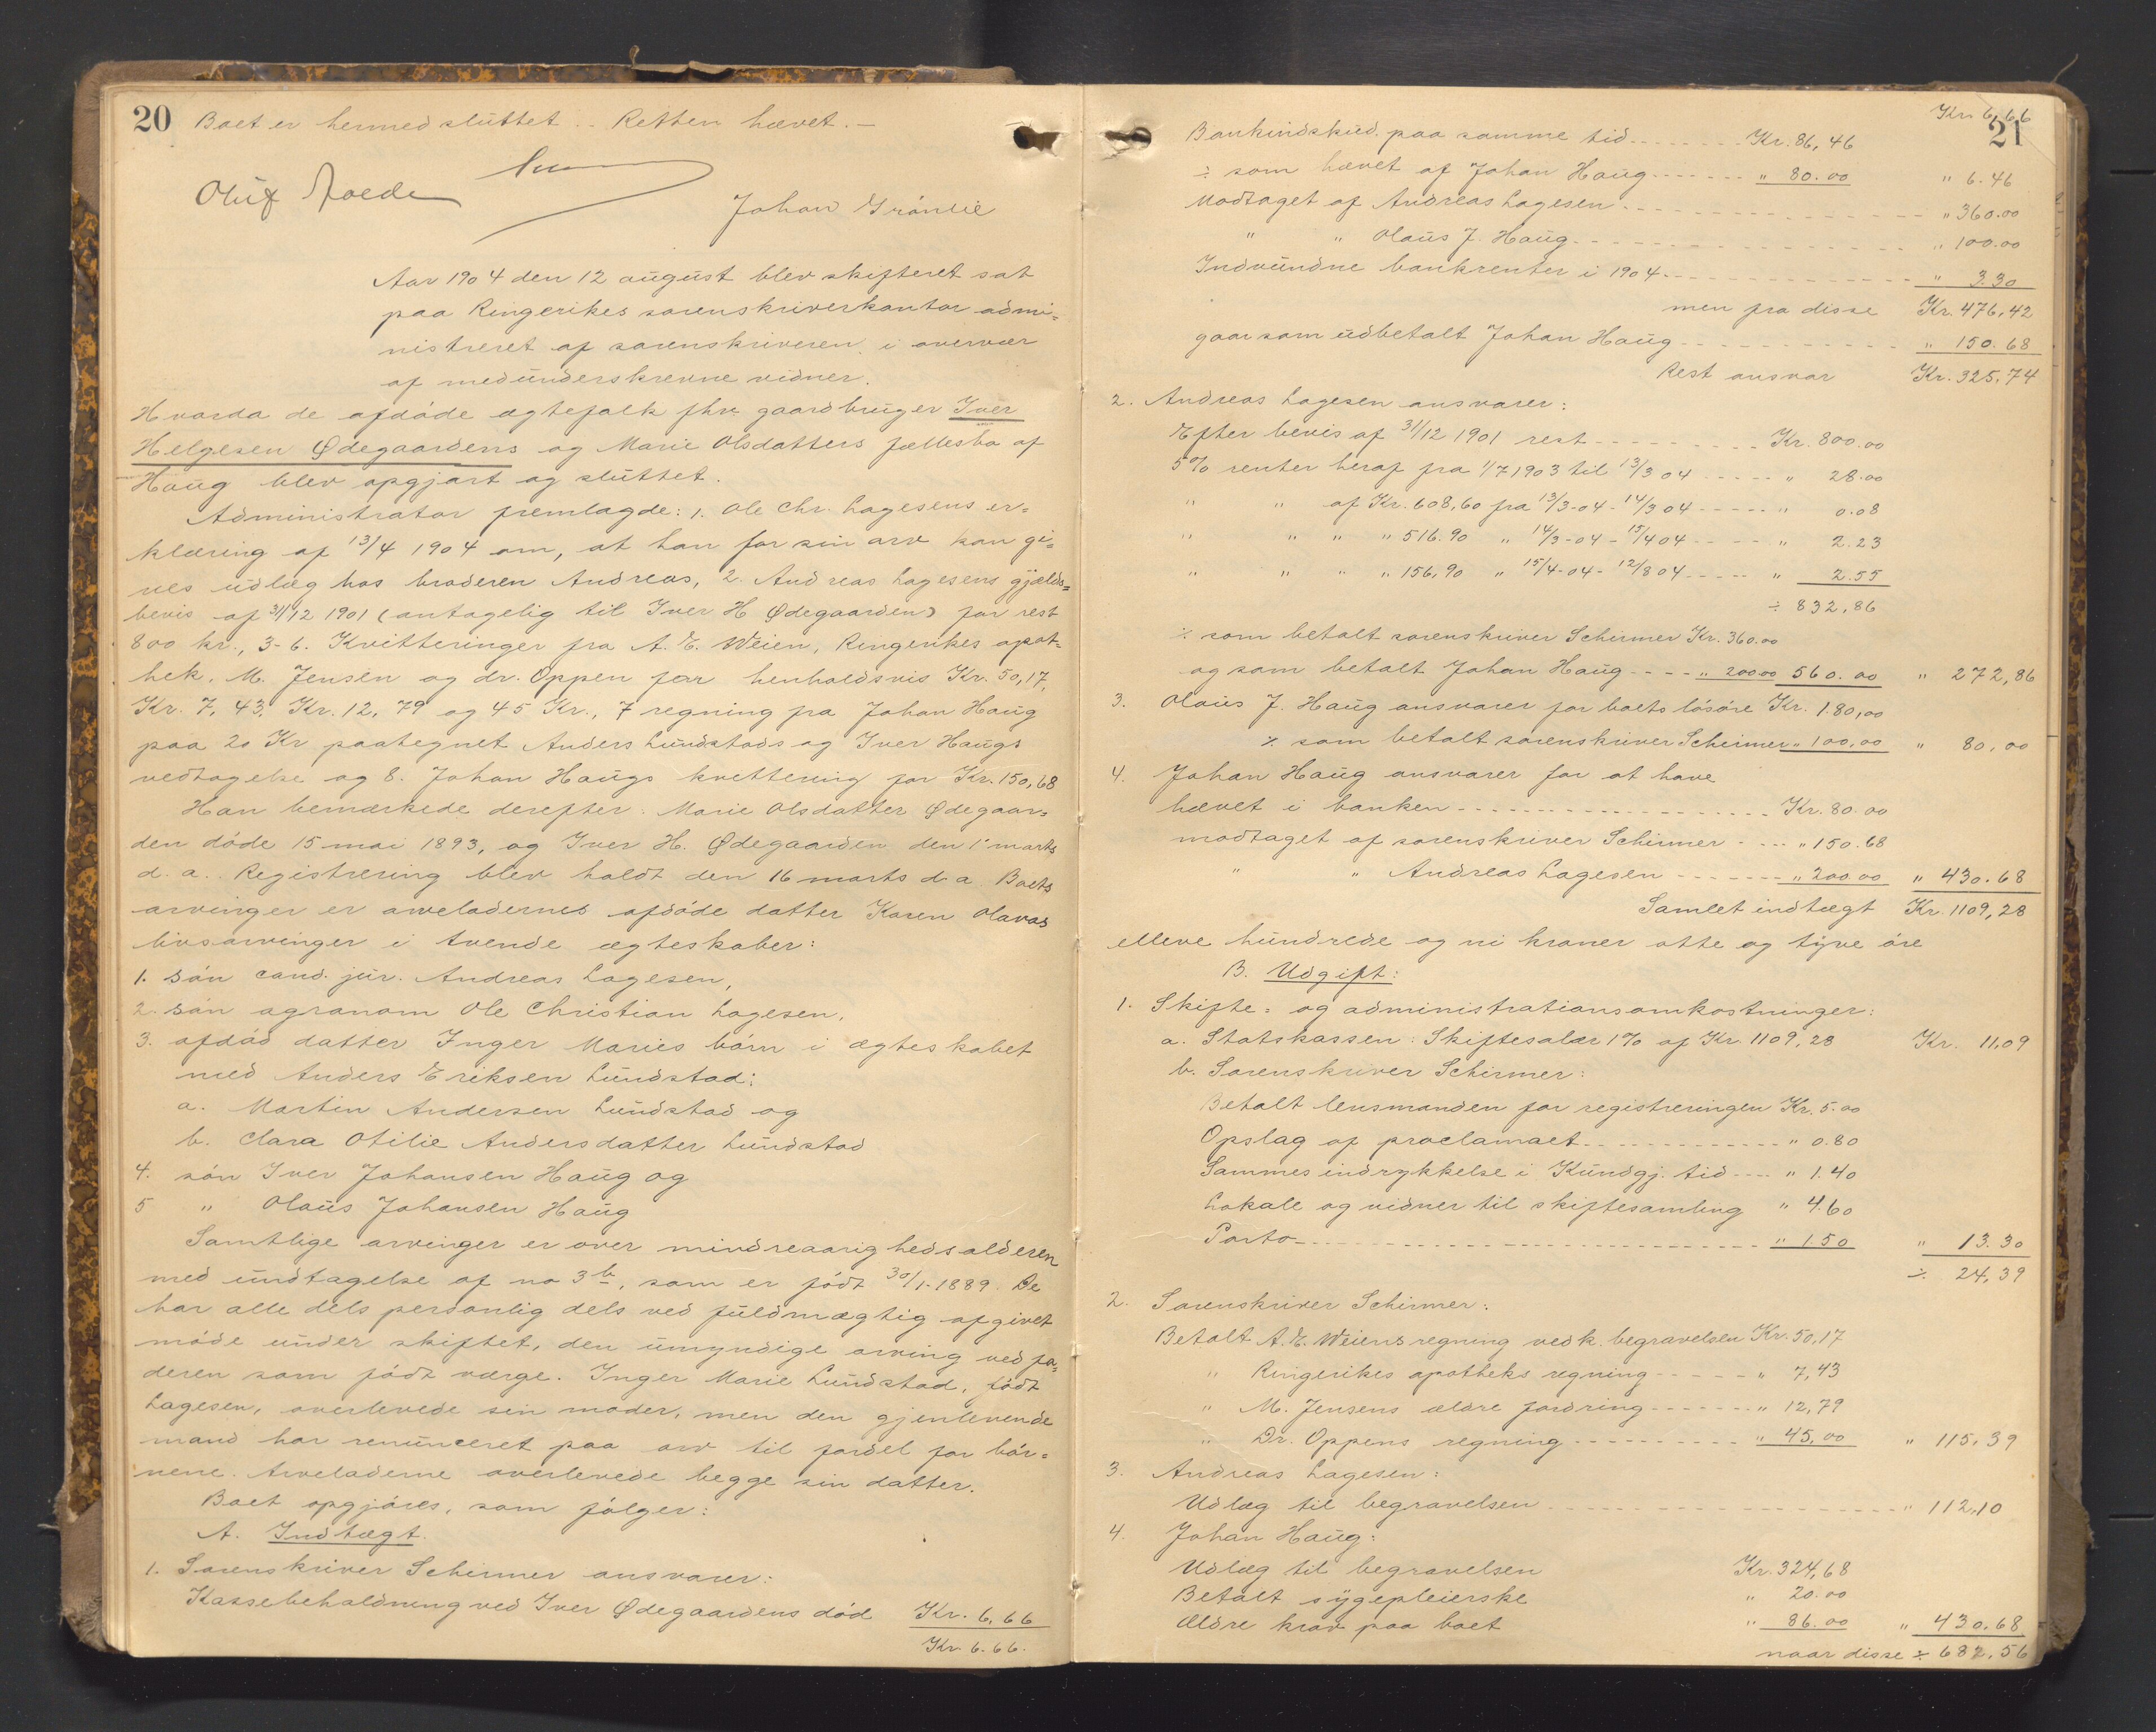 20 Boet er hermed sluttet. . Retten hævet. —
Oluf
Johan Grönlie
Aar 1904 den 12 august blev skifteret sat
paa Ringerikes sorenskriverkontor admi=
nistreret af sorenskriveren i overvær
af medunderskrevne vidner.
Hvorda de afdöde ægtefolk fhv. gaardbruger Iver
Helgesen Ødegaardens og Marie Olsdatters fællesbo af
Haug blev opgjort og sluttet.
Administrator fremlagde: 1. Ole Chr. Lagesens er=
klæring af 13/4 1904 om, at han for sin arv kan gi=
ves udlæg hos broderen Andreas, 2. Andreas Lagesens gjælds=
bevis af 31/12 1901 (antagelig til Iver H Ødegaarden) for rest
800 kr., 3-6. Kvitteringer fra A. E. Weien, Ringerikes apot=
hek, M. Jensen og dr. Oppen for henholdsvis Kr. 50,17,
Kr. 7,43, Kr. 12,79 og 45 Kr., 7 regning fra Johan Haug
paa 20 Kr paategnet Anders Lundstads og Iver Haugs
vedtagelse og 8. Johan Haugs kvittering for Kr. 150,68
Han bemærkede derefter. Marie Olsdatter Ødegaar=
den döde 15 mai 1893, og Iver H. Ødegaarden den 1' marts
d. a.. Registrering blev holdt den 16 marts d. a. Boets
arvinger er arveladernes afdöde datter Karen Olavas
livsarvinger i tvende ægteskaber:
1. sön cand. jur. Andreas Lagesen,
2. sön agronom Ole Christian Lagesen,
3. afdöd datter Inger Maries börn i ægteskabet
med Anders Eriksen Lundstad:
a. Martin Andersen Lundstad og
b. Clara Otilie Andersdatter Lundstad
4. sön Iver Johansen Haug og
5 " Olaus Johansen Haug
Samtlige arvinger er over mindreaarighedsalderen
med undtagelse af no 3b, som er födt 30/1-1889. De
har alle dels personlig dels ved fuldmægtig afgivet
möde under skiftet, den umyndige arving ved fa=
deren som födt værge. Inger Marie Lundstad, födt
Lagesen, overlevede sin moder, men den gjenlevende
mand har renunceret paa arv til fordel for bör=
nene. Arveladerne overlevede begge sin datter.
Boet opgjöres, som fölger:
A. Indtægt.
1. Sorenskriver Schirmer ansvarer:
Kassebeholdning ved Iver Ødegaardens död Kr. 6,66
Kr. 6.66.
Kr. 6,66
21
Bankindskud paa samme tid Kr. 86,46
÷ som hævet af Johan Haug " 80.00 " 6.46
Modtaget af Andreas Lagesen " 360.00
" " Olaus J. Haug " 100.00
Indvundne bankrenter i 1904 " 3.30
men fra disse Kr. 476,42
gaar som udbetalt Johan Haug " 150.68
Rest ansvar Kr. 325,74
2. Andreas Lagesen ansvarer:
Efter bevis af 31/12 1901 rest Kr. 800.00
5% renter heraf fra 1/7 1903 til 13/3 04 " 28.00
" " af Kr. 608,60 fra 13/3-04 - 14/3 04 " 0.08
" " " " 516.90 " 14/3-04 - 15/4 04 " 2.23
" " " " 156,90 " 15/4-04 - 12/8 04 " 2.55
÷ 832,86
÷ som betalt sorenskriver Schirmer Kr. 360.00
og som betalt Johan Haug " 200.00 560.00 " 272,86
3. Olaus J. Haug ansvarer for boets lösöre Kr. 180,00
÷ som betalt sorenskriver Schirmer " 100,00 " 80,00
4. Johan Haug ansvarer for at have
hævet i banken Kr. 80.00
modtaget af sorenskriver Schirmer " 150.68
" " Andreas Lagesen " 200.00 " 430.68
Samlet indtægt Kr. 1109,28
elleve hundrede og ni kroner otte og tyve öre
B. Udgift:
1. Skifte= og administrationsomkostninger:
a. Statskassen: Skiftesalær 1% af Kr. 1109,28 Kr. 11,09
b. Sorenskriver Schirmer:
Betalt lensmanden for registreringen Kr. 5.00
Opslag af proclamaet " 0.80
Sammes indrykkelse i Kundgj. tid " 1.40
Lokale og vidner til skiftesamling " 4.60
Porto " 1.50 " 13.30
÷ 24,39
2. Sorenskriver Schirmer:
Betalt A. E. Weiens regning vedk. begravelsen Kr. 50,17
" Ringerikes apotheks regning " 7,43
" M. Jensens ældre fordring " 12,79
" Dr. Oppens regning " 45,00 " 115,39
3. Andreas Lagesen:
Udlæg til begravelsen " 112,10
4. Johan Haug:
Udlæg til begravelsen Kr. 324,68
Betalt sygepleierske " 20.00
Ældre krav paa boet " 86.00 " 430.68
naar disse ÷ 682,56